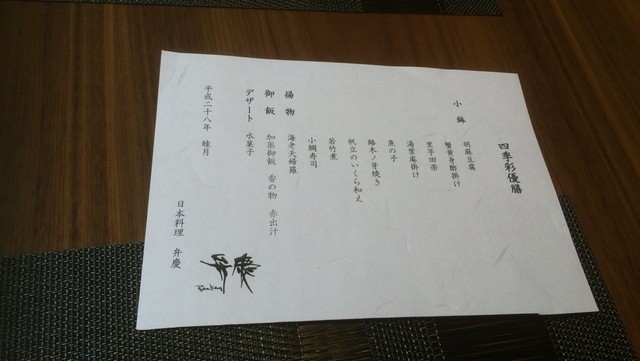 四季彩優膳
小鉢 胡麻豆腐
蟹黄身酢掛け
里芋田楽
湯葉庵掛け
魚の子
鰆木ノ芽焼き
帆立のいくら和え
若竹煮
小鯛寿司
揚物 海老天婦羅
御飯 加薬御飯 香の物 赤出汁
デザート 水菓子
平成二十八年 睦月
日本料理 弁慶
弁慶
Benkay